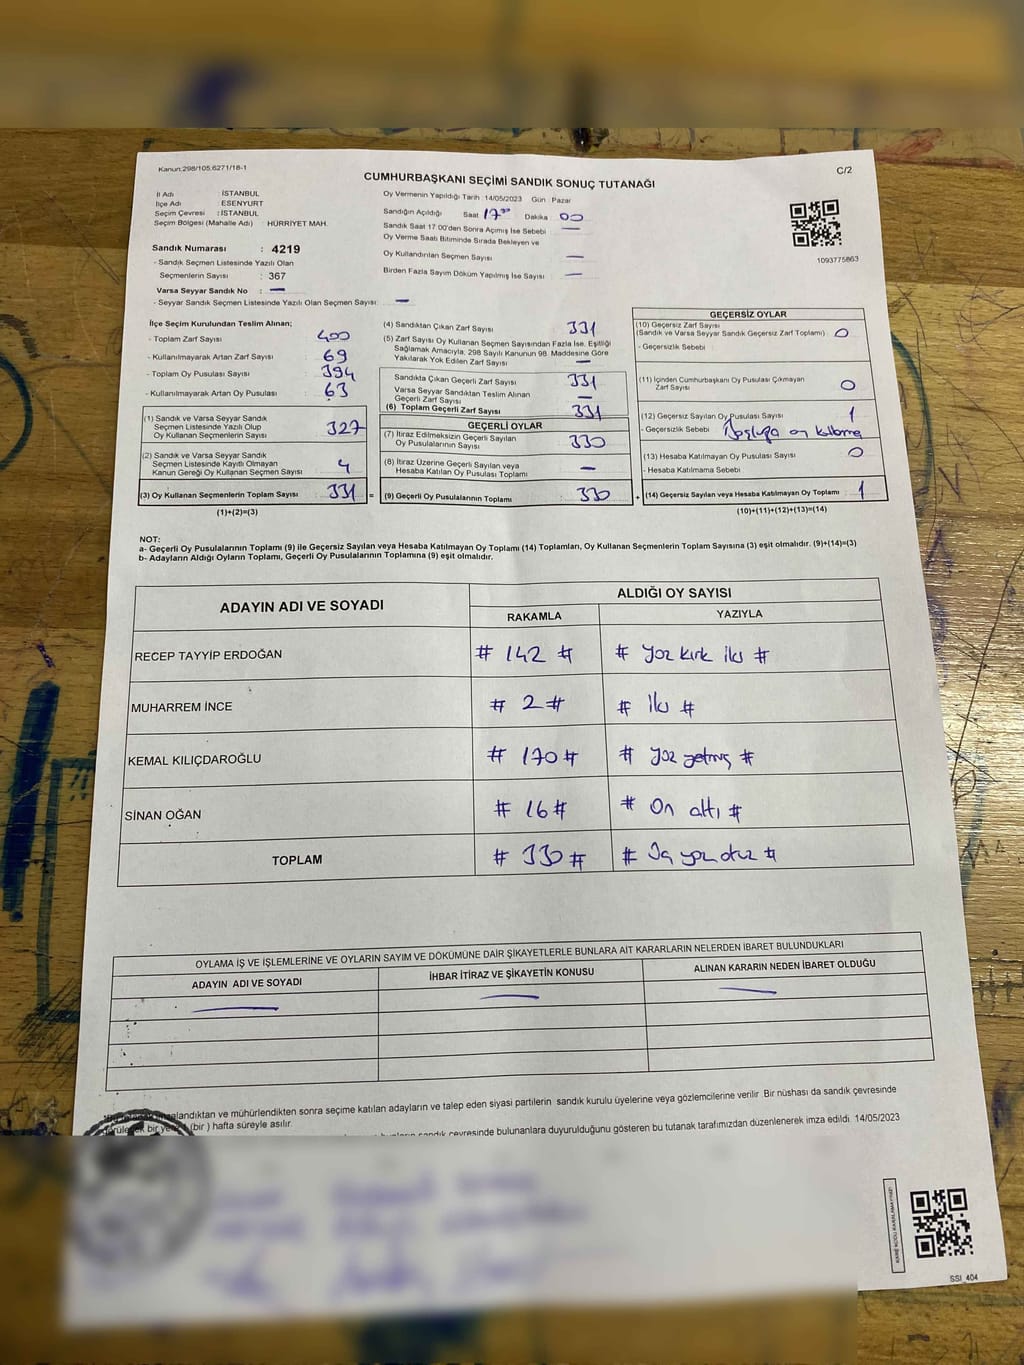 Kanun:298/105.6271/18-1
C/2
CUMHURBAŞKANI SEÇİMİ SANDIK SONUÇ TUTANAĞI
İl Adı : İSTANBUL
İlçe Adı : ESENYURT
Seçim Çevresi : İSTANBUL
Seçim Bölgesi (Mahalle Adı) : HÜRRİYET MAH.
Sandık Numarası : 4219
- Sandık Seçmen Listesinde Yazılı Olan
Seçmenlerin Sayısı : 367
Varsa Seyyar Sandık No : —
- Seyyar Sandık Seçmen Listesinde Yazılı Olan Seçmen Sayısı: —
Oy Vermenin Yapıldığı Tarih :14/05/2023 Gün : Pazar
Sandığın Açıldığı Saat 17:00 Dakika 00
Sandık Saat 17.00'den Sonra Açımış İse Sebebi —
Oy Verme Saati Bitiminde Sırada Bekleyen ve
Oy Kullandırılan Seçmen Sayısı —
Birden Fazla Sayım Döküm Yapılmış İse Sayısı —
1093775863
İlçe Seçim Kurulundan Teslim Alınan;
- Toplam Zarf Sayısı : 400
- Kullanılmayarak Artan Zarf Sayısı : 69
- Toplam Oy Pusulası Sayısı : 394
- Kullanılmayarak Artan Oy Pusulası : 63
(1) Sandık ve Varsa Seyyar Sandık
Seçmen Listesinde Yazılı Olup
Oy Kullanan Seçmenlerin Sayısı 327
(2) Sandık ve Varsa Seyyar Sandık
Seçmen Listesinde Kayıtlı Olmayan
Kanun Gereği Oy Kullanan Seçmen Sayısı 4
(3) Oy Kullanan Seçmenlerin Toplam Sayısı 331 =
(1)+(2)=(3)
(4) Sandıktan Çıkan Zarf Sayısı 331
(5) Zarf Sayısı Oy Kullanan Seçmen Sayısından Fazla İse, Eşitliği
Sağlamak Amacıyla, 298 Sayılı Kanunun 98. Maddesine Göre
Yakılarak Yok Edilen Zarf Sayısı —
Sandıkta Çıkan Geçerli Zarf Sayısı 331
Varsa Seyyar Sandıktan Teslim Alınan
Geçerli Zarf Sayısı —
(6) Toplam Geçerli Zarf Sayısı 331
GEÇERLİ OYLAR
(7) İtiraz Edilmeksizin Geçerli Sayılan
Oy Pusulalarının Sayısı 330
(8) İtiraz Üzerine Geçerli Sayılan veya
Hesaba Katılan Oy Pusulası Toplamı —
(9) Geçerli Oy Pusulalarının Toplamı 330 +
GEÇERSİZ OYLAR
(10) Geçersiz Zarf Sayısı
(Sandık ve Varsa Seyyar Sandık Geçersiz Zarf Toplamı) 0
- Geçersizlik Sebebi
(11) İçinden Cumhurbaşkanı Oy Pusulası Çıkmayan
Zarf Sayısı 0
(12) Geçersiz Sayılan Oy Pusulası Sayısı 1
- Geçersizlik Sebebi Boşluğa oy kullanma
(13) Hesaba Katılmayan Oy Pusulası Sayısı 0
- Hesaba Katılmama Sebebi
(14) Geçersiz Sayılan veya Hesaba Katılmayan Oy Toplamı 1
(10)+(11)+(12)+(13)=(14)
NOT:
a- Geçerli Oy Pusulalarının Toplamı (9) ile Geçersiz Sayılan veya Hesaba Katılmayan Oy Toplamı (14) Toplamları, Oy Kullanan Seçmenlerin Toplam Sayısına (3) eşit olmalıdır. (9)+(14)=(3)
b- Adayların Aldığı Oyların Toplamı, Geçerli Oy Pusulalarının Toplamına (9) eşit olmalıdır.
ADAYIN ADI VE SOYADI
ALDIĞI OY SAYISI
RAKAMLA YAZIYLA
RECEP TAYYİP ERDOĞAN # 142 # # Yüz kırk iki #
MUHARREM İNCE # 2 # # İki #
KEMAL KILIÇDAROĞLU # 170 # # Yüz yetmiş #
SİNAN OĞAN # 16 # # On altı #
TOPLAM # 330 # # Üç yüz otuz #
OYLAMA İŞ VE İŞLEMLERİNE VE OYLARIN SAYIM VE DÖKÜMÜNE DAİR ŞİKAYETLERLE BUNLARA AİT KARARLARIN NELERDEN İBARET BULUNDUKLARI
ADAYIN ADI VE SOYADI İHBAR İTİRAZ VE ŞİKAYETİN KONUSU ALINAN KARARIN NEDEN İBARET OLDUĞU
— — —
alandıktan ve mühürlendikten sonra seçime katılan adayların ve talep eden siyasi partilerin sandık kurulu üyelerine veya gözlemcilerine verilir. Bir nüshası da sandık çevresinde
bir ye (bir) hafta süreyle asılır.
sandık çevresinde bulunanlara duyurulduğunu gösteren bu tutanak tarafımızdan düzenlenerek imza edildi. 14/05/2023
SSI_404